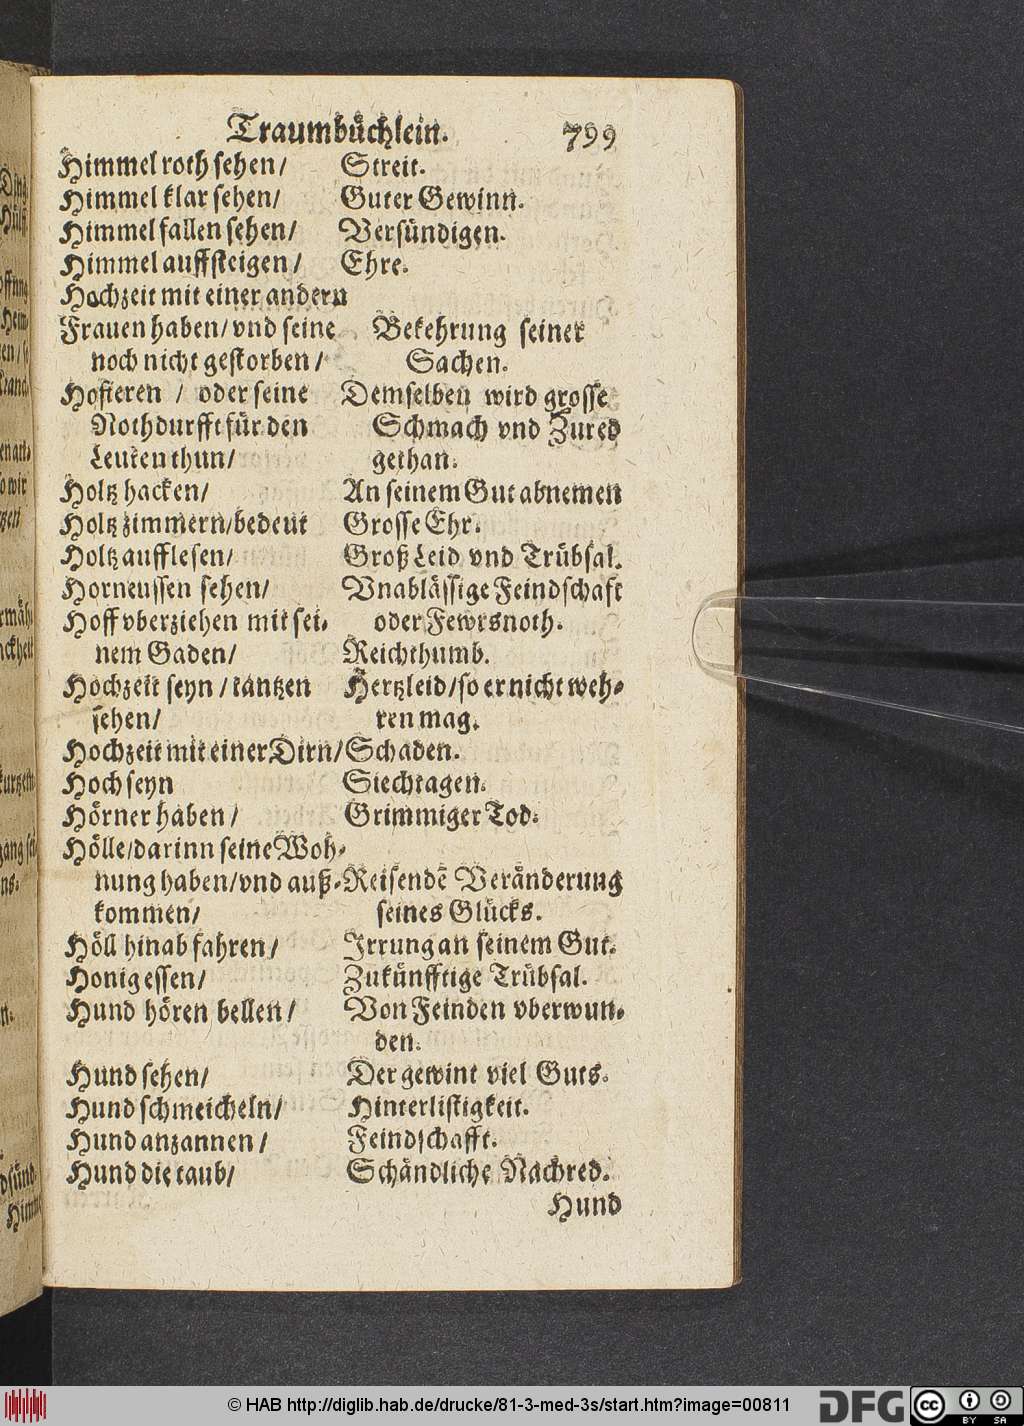 Traumbüchlein. 799
Himmel roth sehen/ Streit.
Himmel klar sehen/ Guter Gewinn.
Himmel fallen sehen/ Versündigen.
Himmel auffsteigen/ Ehre.
Hochzeit mit einer andern
Frauen haben/ vnd seine Bekehrung seiner
noch nicht gestorben/ Sachen.
Hofieren / oder seine Demselben wird grosse
Nothdurfft für den Schmach vnd Zured
Leuten thun/ gethan.
Holtz hacken/ An seinem Gut abnemen
Holtz zimmern/ bedeut Grosse Ehr.
Holtz aufflesen/ Groß Leid vnd Trübsal.
Horneussen sehen/ Vnablässige Feindschaft
Hoff vberziehen mit sei- oder Fewrsnoth.
nem Gaden/ Reichthumb.
Hochzeit seyn / tantzen Hertzleid/ so er nicht weh-
sehen/ ren mag.
Hochzeit mit einer Dirn/ Schaden.
Hoch seyn Siechtagen.
Hörner haben/ Grimmiger Tod.
Hölle/ darinn seine Woh-
nung haben/ vnd auß- Reisendē Veränderung
kommen/ seines Glücks.
Höll hinab fahren/ Irrung an seinem Gut.
Honig essen/ Zukünfftige Trübsal.
Hund hören bellen/ Von Feinden vberwun-
den.
Hund sehen/ Der gewint viel Guts.
Hund schmeicheln/ Hinterlistigkeit.
Hund anzannen/ Feindschafft.
Hund die taub/ Schändliche Nachred.
Hund
© HAB http://diglib.hab.de/drucke/81-3-med-3s/start.htm?image=00811
DFG cc BY SA